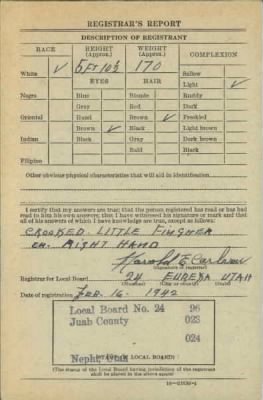 REGISTRAR'S REPORT
DESCRIPTION OF REGISTRANT
RACE HEIGHT (Approx.) WEIGHT (Approx.) COMPLEXION
White ✓ 5 FT 10½ 170 Sallow
EYES HAIR Light ✓
Negro Blue Blonde Ruddy
Gray Red Dark
Oriental Hazel Brown ✓ Freckled
Brown ✓ Black Light brown
Indian Black Gray Dark brown
Bald Black
Filipino
Other obvious physical characteristics that will aid in identification
I certify that my answers are true; that the person registered has read or has had
read to him his own answers; that I have witnessed his signature or mark and that
all of his answers of which I have knowledge are true, except as follows:
CROOKED LITTLE FINGHER
ON RIGHT HAND
Harold E. Carlson
(Signature of registrar)
Registrar for Local Board 24 EUREKA UTAH
(Number) (City or county) (State)
Date of registration FEB. 16. 1942
Local Board No. 24 96
Juab County 023
024
Nephi, Utah
(STAMP OF LOCAL BOARD)
(The stamp of the Local Board having jurisdiction of the registrant
shall be placed in the above space)